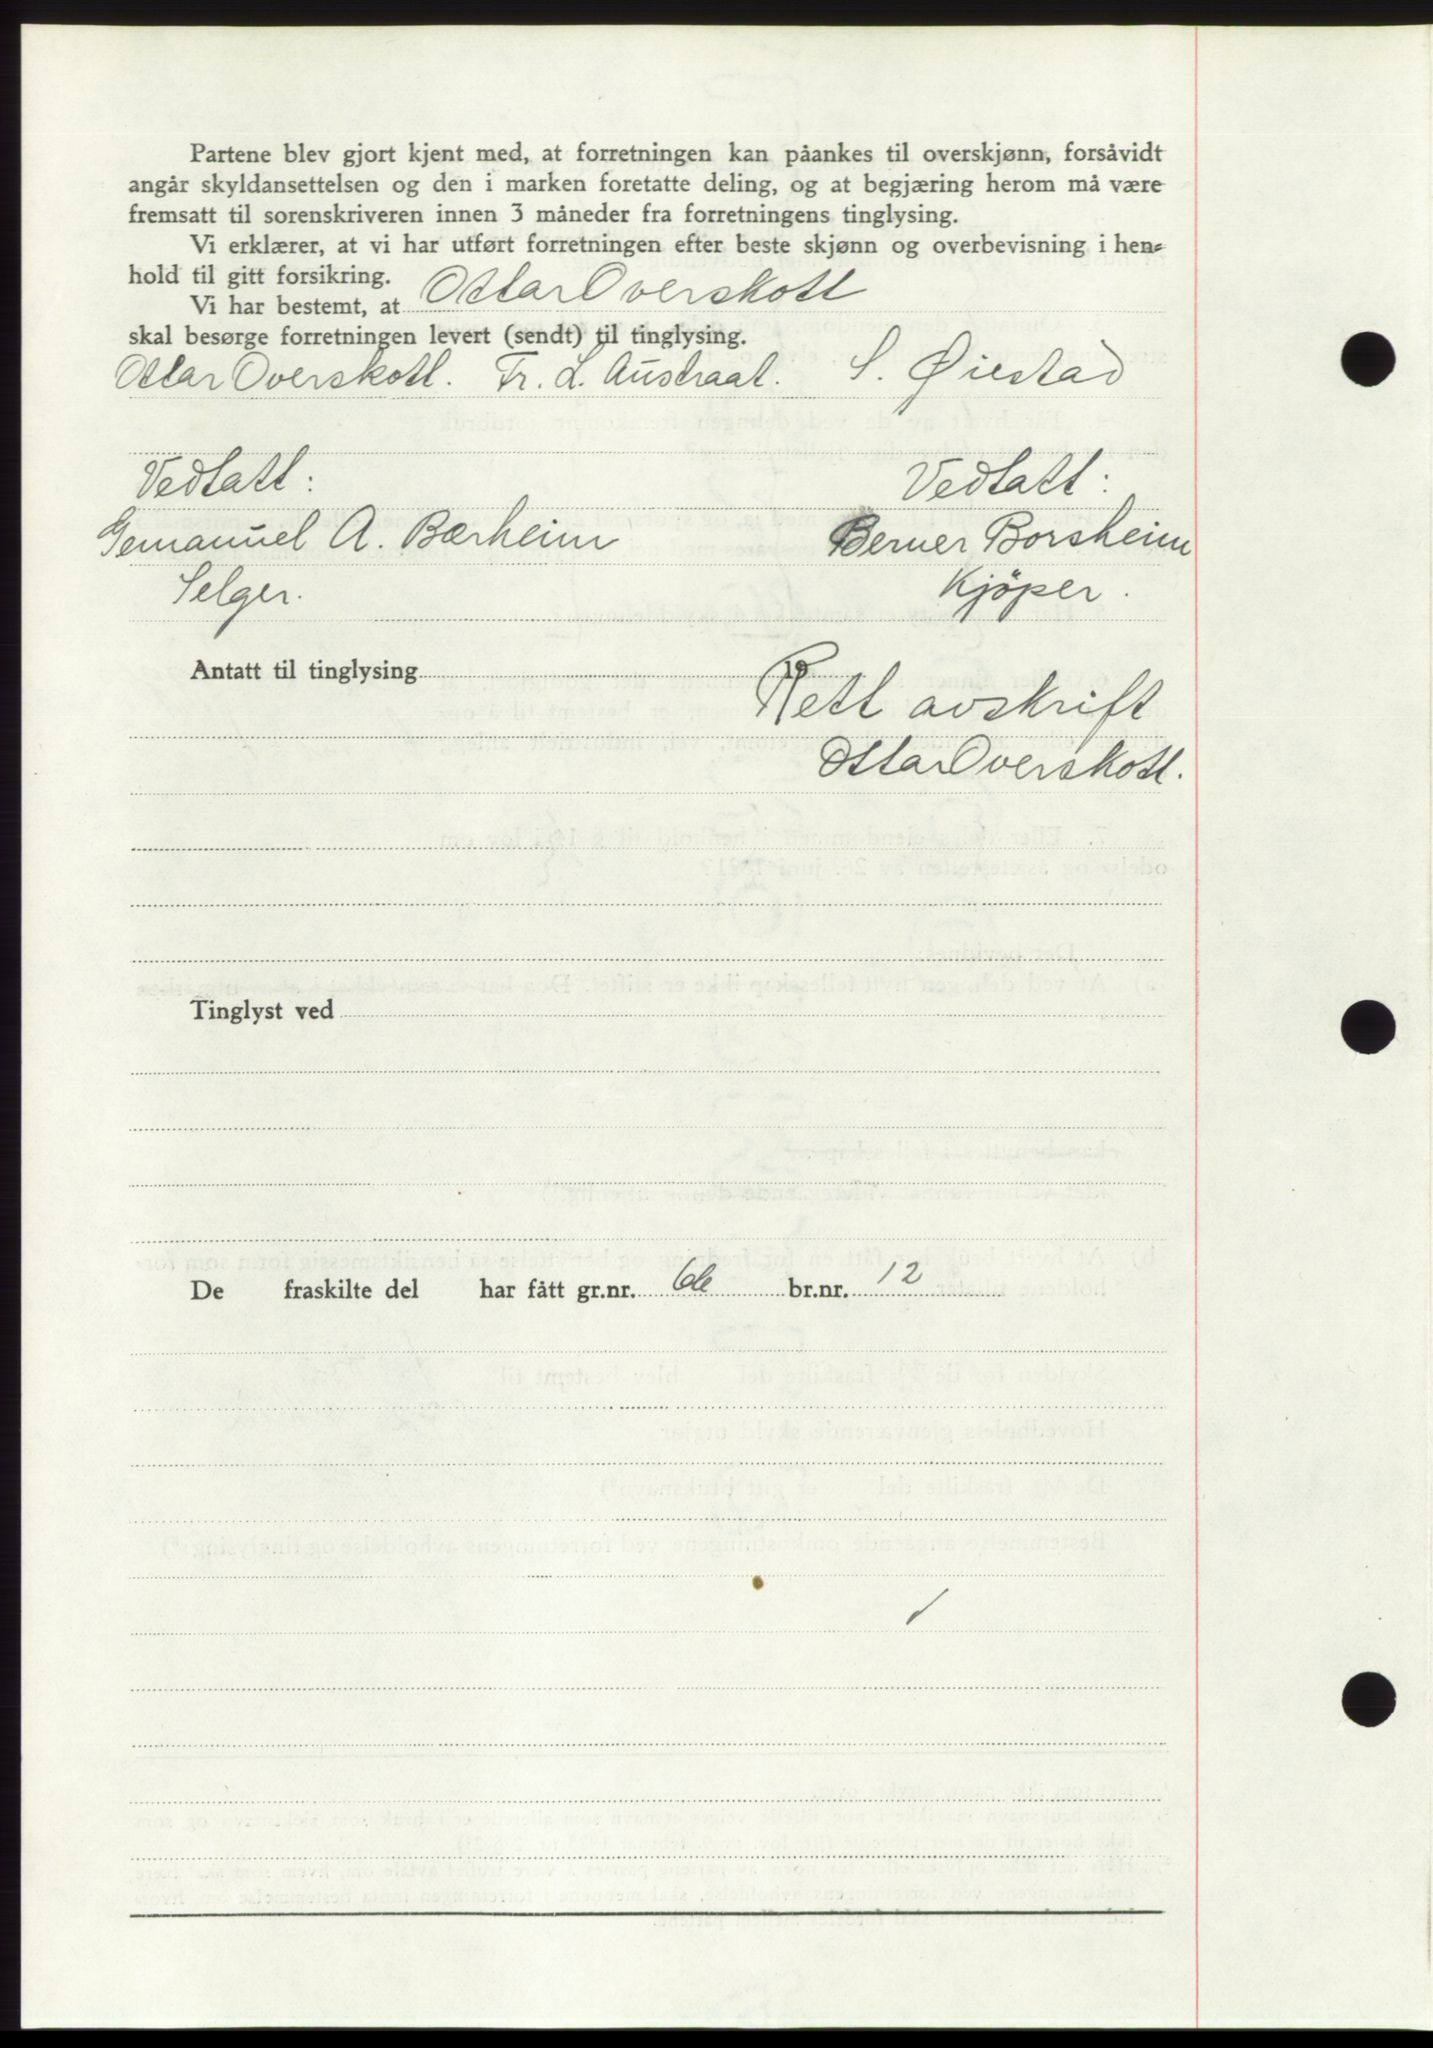 Partene blev gjort kjent med, at forretningen kan påankes til overskjønn, forsåvidt
angår skyldansettelsen og den i marken foretatte deling, og at begjæring herom må være
fremsatt til sorenskriveren innen 3 måneder fra forretningens tinglysing.
Vi erklærer, at vi har utført forretningen efter beste skjønn og overbevisning i hen-
hold til gitt forsikring.
Vi har bestemt, at Ottar Overskott
skal besørge forretningen levert (sendt) til tinglysing.
Ottar Overskott. Fr. L. Austraat. S. Øiestad
Vedtatt: Vedtatt:
Gemanuel A. Bærheim Berner Borsheim
Selger. Kjöper.
Antatt til tinglysing 19
Rett avskrift
Ottar Overskott.
Tinglyst ved
De fraskilte del har fått gr.nr. br.nr. 12